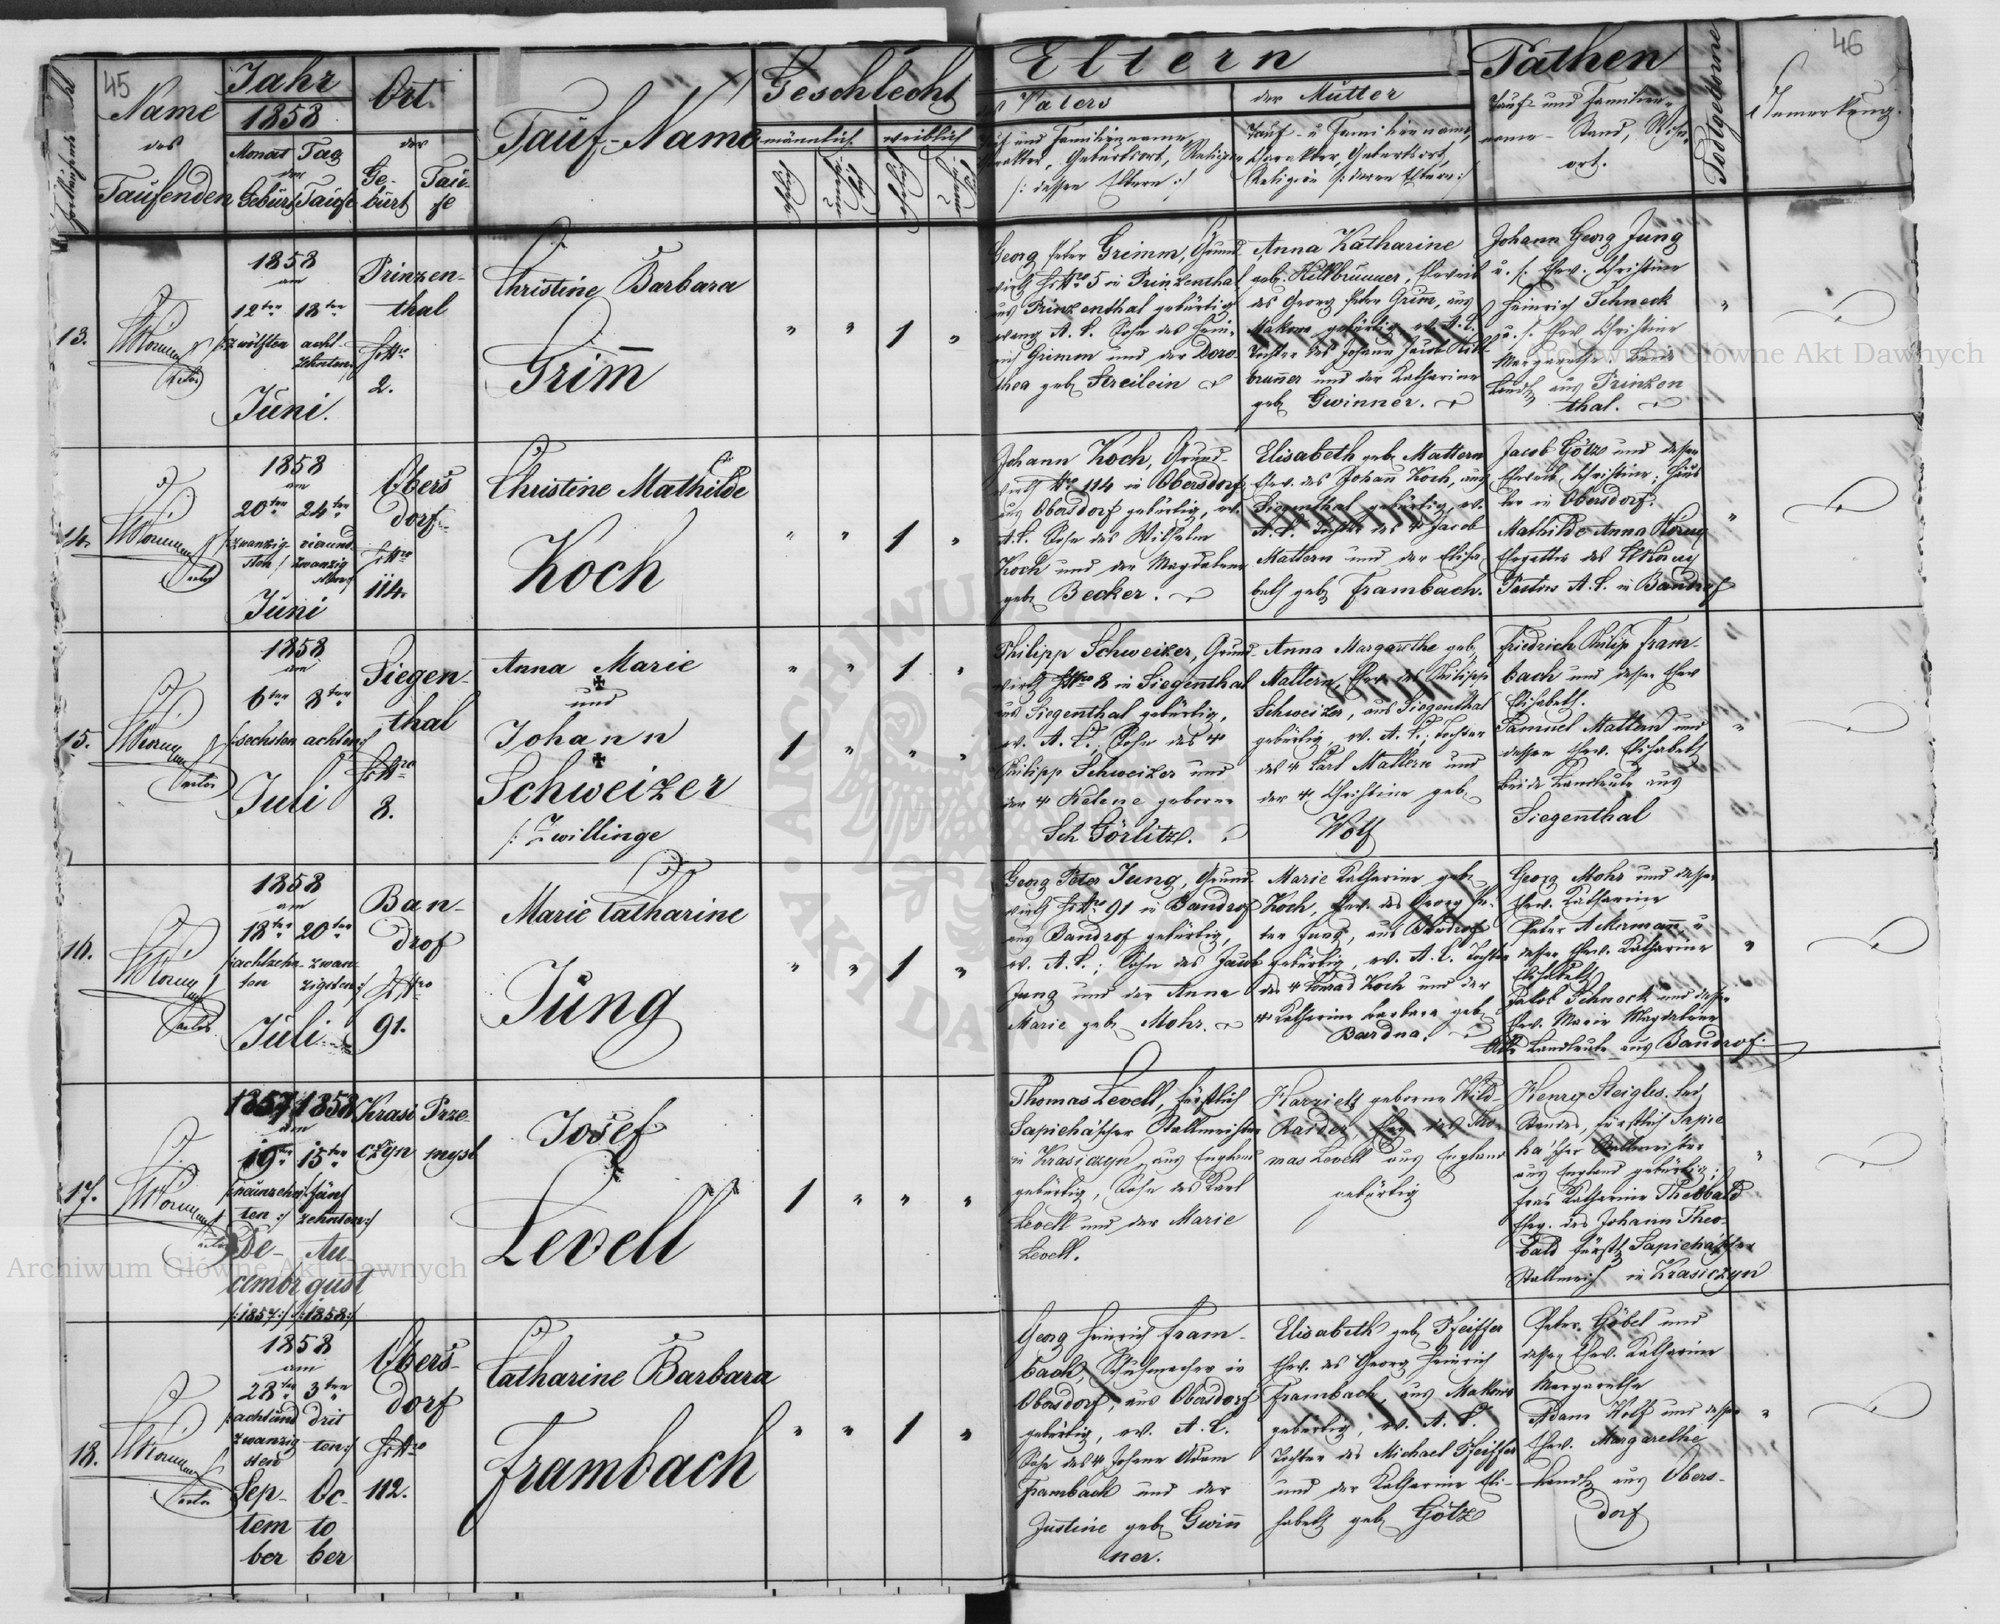 45
46
Name
des
Taufenden
Jahr
1858
Monat Tag
der
Geburt Taufe
Ort
der
Ge-
burt
Tau-
fe
Tauf-Name
Geschlecht
männlich
weiblich
Eltern
des Vaters
Tauf und Familienname,
Charakter, Geburtsort, Religion
/: dessen Eltern :/
der Mutter
Tauf- u Familienname,
Charakter, Geburtsort,
Religion /: deren Eltern :/
Pathen
Tauf- und Familien-
name - Stand, Wohn-
ort.
Todtgeborne
Anmerkung.
13.
1858
am
12ten 18ten
/: zwölften acht-
zehnten :/
Juni.
Prinzen-
thal
HsNro
2.
Christine Barbara
Grimm
" " 1 "
Georg Peter Grimm, Grund-
wirth HsNro 5 in Prinzenthal
aus Prinzenthal gebürtig
evang A. C. Sohn des Hein-
rich Grimm und der Doro-
thea geb. Streilein
Anna Katharine
geb. Killbrunner, Eheweib
des Georg Peter Grimm, aus
Makowa gebürtig ev. A. C.
Tochter des Johann Jacob Kill-
brunner und der Katharine
geb. Gwinner.
Johann Georg Jung
u. /: Ehew. Christine
Heinrich Schneck
u. /: Ehew Christine
Margarethe.
Landl. aus Prinzen
thal.
14.
1858
am
20ten 24ten
/: zwanzig- vierund-
sten / zwanzig
sten :/
Juni
Obers
dorf
HsNro
114.
Christine Mathilde
Koch
" " 1 "
Johann Koch, Grund-
wirth Nro 114 in Obersdorf,
aus Obersdorf gebürtig, ev.
A. C. Sohn des Wilhelm
Koch und der Magdalena
geb. Becker.
Elisabeth geb. Mattern
Ehew. des Johann Koch, aus
Siegenthal gebürtig, ev.
A. C. Tochter des + Jacob
Mattern und der Elisa-
beth geb. Frambach.
Jacob Götz und dessen
Eheweib Christine,
in Obersdorf.
Mathilde Anna
Ehegattin des
Pastors A. C. in Bandrof
15.
1858
am
6ten 8ten
/: sechsten achten :/
Juli
Siegen-
thal
HsNro
8.
Anna Marie
+
und
Johann
+
Schweizer
/: Zwillinge
" " 1 "
1 " " "
Philipp Schweizer, Grund-
wirth HsNro 8 in Siegenthal
aus Siegenthal gebürtig,
ev. A. C., Sohn des +
Philipp Schweizer und
der + Helene geborne
Sch Görlitz.
Anna Margarethe geb.
Mattern, Ehew. des Philipp
Schweizer, aus Siegenthal
gebürtig, ev. A. C., Tochter
des + Karl Mattern und
der + Christine geb.
Wolf
Friedrich Philip Fram-
bach und dessen Ehew
Elisabeth.
Samuel Mattern und
dessen Ehew. Elisabeth
beide Landleute aus
Siegenthal
16.
1858
am
18ten 20ten
/: achtzehn- zwan-
ten zigsten :/
Juli
Ban-
drof
HsNro
91.
Marie Catharine
Jung
" " 1 "
Georg Peter Jung, Grund-
wirth HsNro 91 in Bandrof
aus Bandrof gebürtig,
ev. A. C.; Sohn des Jacob
Jung und der Anna
Marie geb. Mohr.
Marie Katharine geb.
Koch, Ehew. des Georg Pe-
ter Jung, aus Bandrof
gebürtig, ev. A. C. Tochter
des + Konrad Koch und der
+ Katharine Barbara geb.
Bardna.
Georg Mohr und dessen
Ehew. Katharine
Peter Ackermann, u
dessen Ehew. Katharine
Elisabeth
Jakob Schneck und dessen
Ehew. Marie Magdalena
Alle Landleute aus Bandrof.
17.
1857 1858
am
19ten 15ten
/: neunzehn- /: fünf
ten :/ zehnten :/
De- Au-
cember gust
/: 1857 :/ /: 1858 :/
Krasi
czyn
Prze-
mysl
Josef
Levell
1 " " "
Thomas Levell, fürstlich
Sapieha'scher Stallmeister
in Krasiczyn, aus England
gebürtig, Sohn des Karl
Levell und der Marie
Levell.
Harriett geborne Wild-
Rarder, Ehew. des Tho-
mas Levell aus England
gebürtig
Henry Steigles.
Standes, fürstlich Sapie
ha'scher Stallmeister
aus England gebürtig;
Frau Katharine Theobald
Ehew. des Johann Theo-
bald fürstl. Sapieha'scher
Stallmeist. in Krasiczyn
18.
1858
am
28ten 3ten
/: achtund drit
zwanzig ten :/
sten
Sep- Oc-
tem to
ber ber
Obers-
dorf
HsNro
112.
Catharine Barbara
Frambach
" " 1 "
Georg Heinrich Fram-
bach, Schuhmacher in
Obersdorf, aus Obersdorf
gebürtig, ev. A. C.
Sohn des + Johann Adam
Frambach und der
Justine geb. Gwinn
ner.
Elisabeth geb. Pfeiffer
Ehew. des Georg Heinrich
Frambach, aus Makowa
gebürtig, ev. A. C.
Tochter des Michael Pfeiffer
und der Katharine Eli-
sabeth geb. Götz
Peter Göbel und
dessen Ehew. Katharine
Margaretha
Adam Wolf und dessen
Ehew. Margarethe
Landl. aus Obers-
dorf
Archiwum Główne Akt Dawnych
Archiwum Główne Akt Dawnych
ARCHIWUM GŁÓWNE AKT DAWNYCH